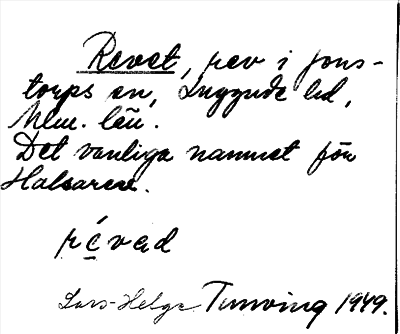 Revet, rev i Jons-
torps sn, Luggude hd,
Mlm. län.
Det vanliga namnet för
Halsaren.
révad
Lars-Helge Tunving 1949.